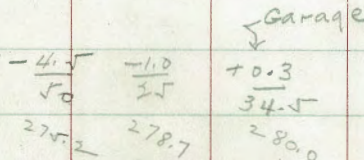 Garage
-4.5 -1.0 +0.3
50 25 34.5
275.2 278.7 280.0